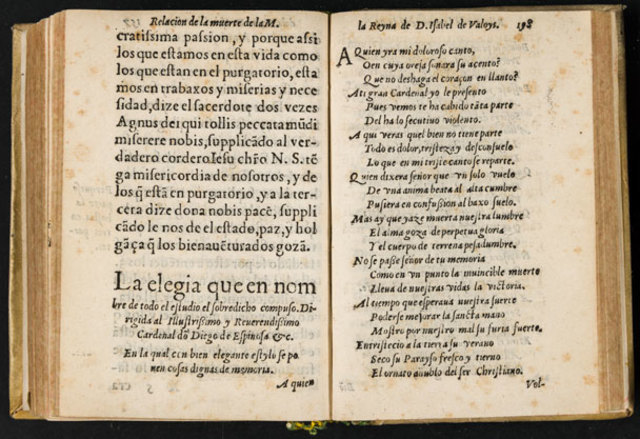 Relacion de la muerte de la M.
cratissima passion, y porque assi
los que estamos en esta vida como
los que estan en el purgatorio, esta
mos en trabaxos y miserias y nece
sidad, dize el sacerdote dos vezes
Agnus dei qui tollis peccata mũdi
miserere nobis, supplicãdo al ver-
dadero cordero Iesu chr̃o N. S. tẽ
ga misericordia de nosotros, y de
los q̃ estã en purgatorio, y a la ter-
cera dize dona nobis pacẽ, suppli
cãdo le nos de el estado, paz, y hol
gãça q̃ los bienauẽturados gozã.
La elegia que en nom
bre de todo el estudio el sobredicho compuso. Di-
rigida al Illustrissimo y Reuerendissimo
Cardenal dõ Diego de Espinosa &c.
En la qual con bien elegante estylo se po
nen cosas dignas de memoria.
A quien
la Reyna de D. Isabel de Valoys. 198
A Quien yra mi doloroso canto,
O en cuya oreja sonara su acento?
Que no deshaga el coraçon en llanto?
A ti gran Cardenal yo le presento
Pues vemos te ha cabido tãta parte
Del ha lo secutiuo violento.
A qui veras quel bien no tiene parte
Todo es dolor, tristeza y desconsuelo
Lo que en mi triste canto se reparte.
Quien dixera señor que vn solo vuelo
De vna anima beata al alta cumbre
Pusiera en confussion al baxo suelo.
Mas ay que yaze muerta nuestra lumbre
El alma goza de perpetua gloria
Y el cuerpo de terrena pesadumbre.
No se passe señor de tu memoria
Como en vn punto la inuincible muerte
Lleua de nuestras vidas la victoria.
Al tiempo que esperaua nuestra suerte
Poderse mejorar la sancta mano
Mostro por nuestro mal su furia fuerte.
Entristecio a la tierra su verano
Seco su Parayso fresco y tierno
El ornato añublo del ser Christiano.
Vol-